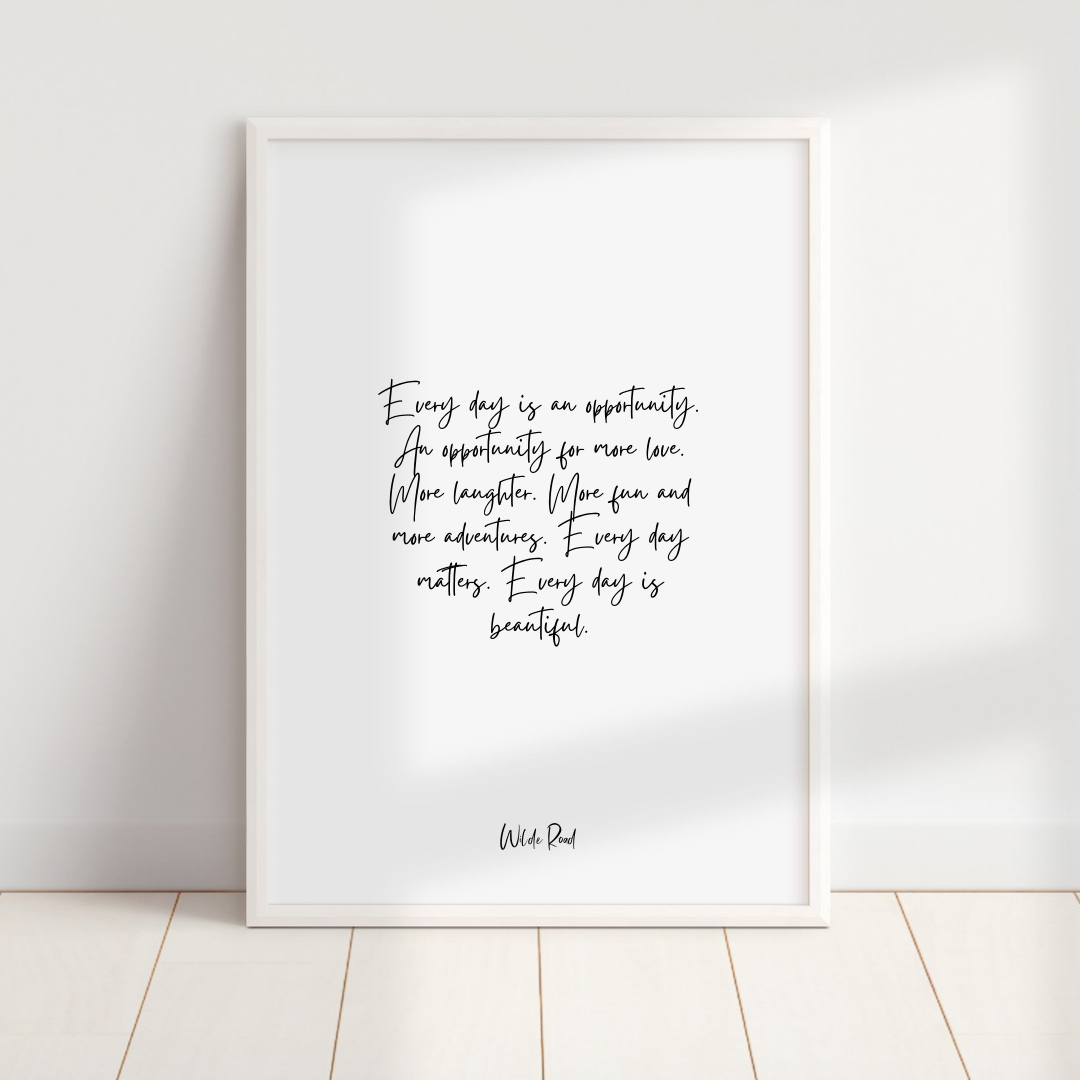 Every day is an opportunity.
An opportunity for more love.
More laughter. More fun and
more adventures. Every day
matters. Every day is
beautiful.
Wilde Road